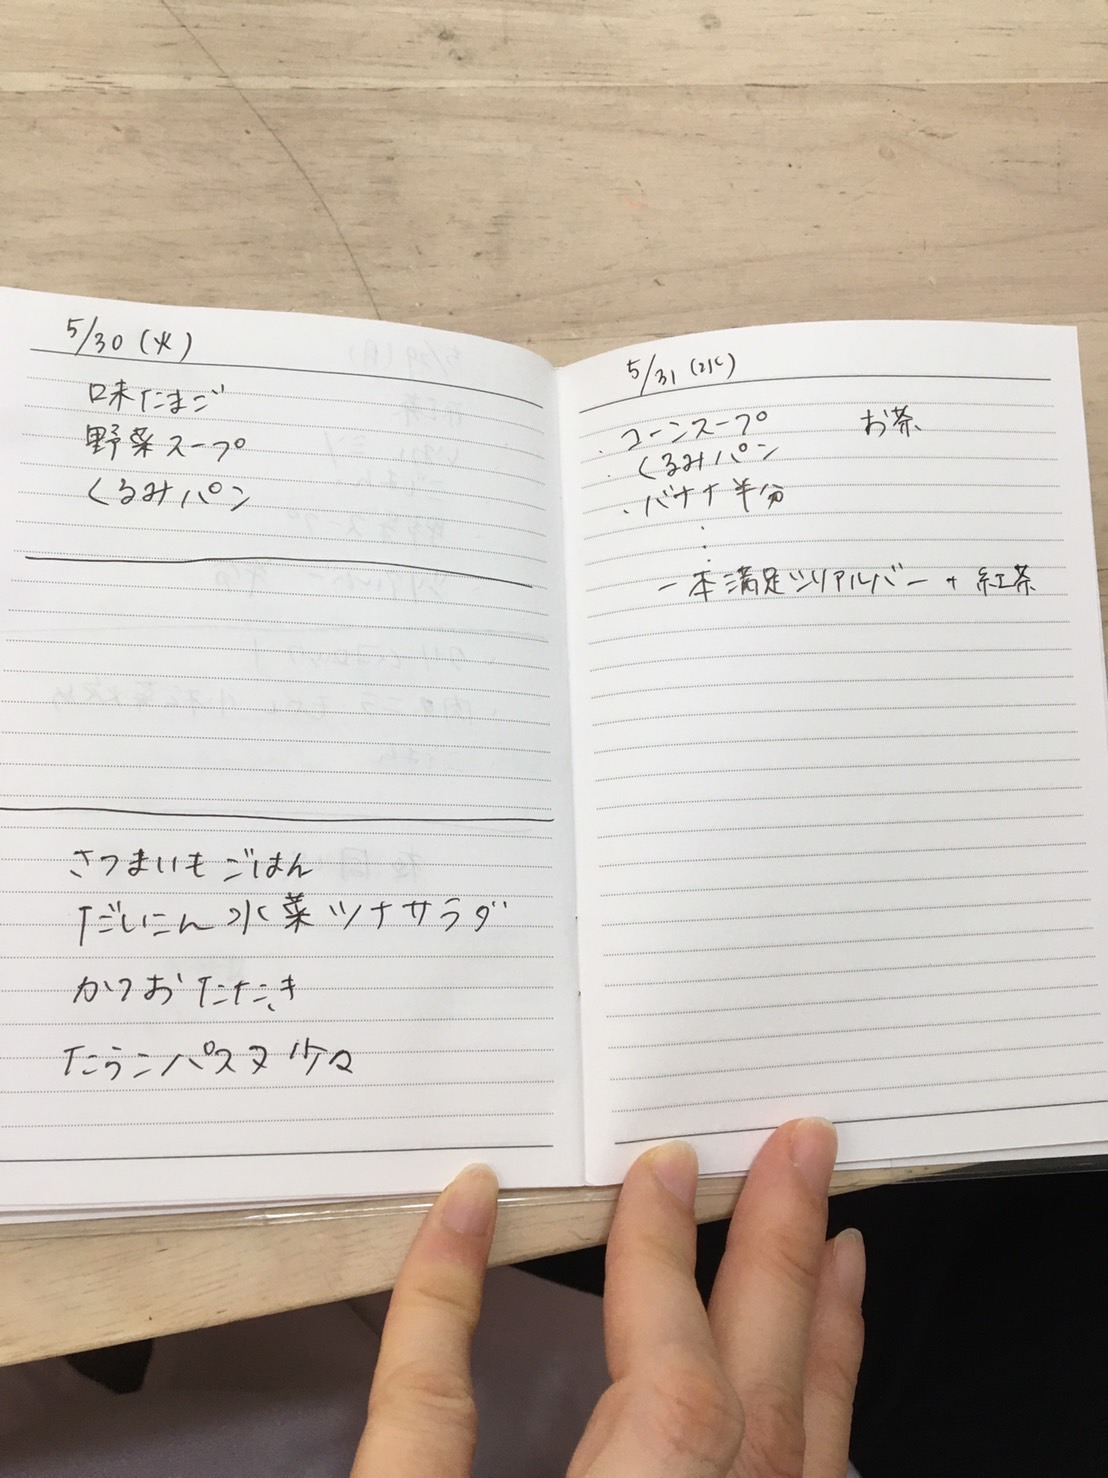 5/30(火)
味たまご
野菜スープ
くるみパン
さつまいもごはん
だいこん 水菜 ツナサラダ
かつおたたき
たらこパスタ 少々
5/31(水)
・コーンスープ お茶
・くるみパン
・バナナ半分
一本満足シリアルバー + 紅茶